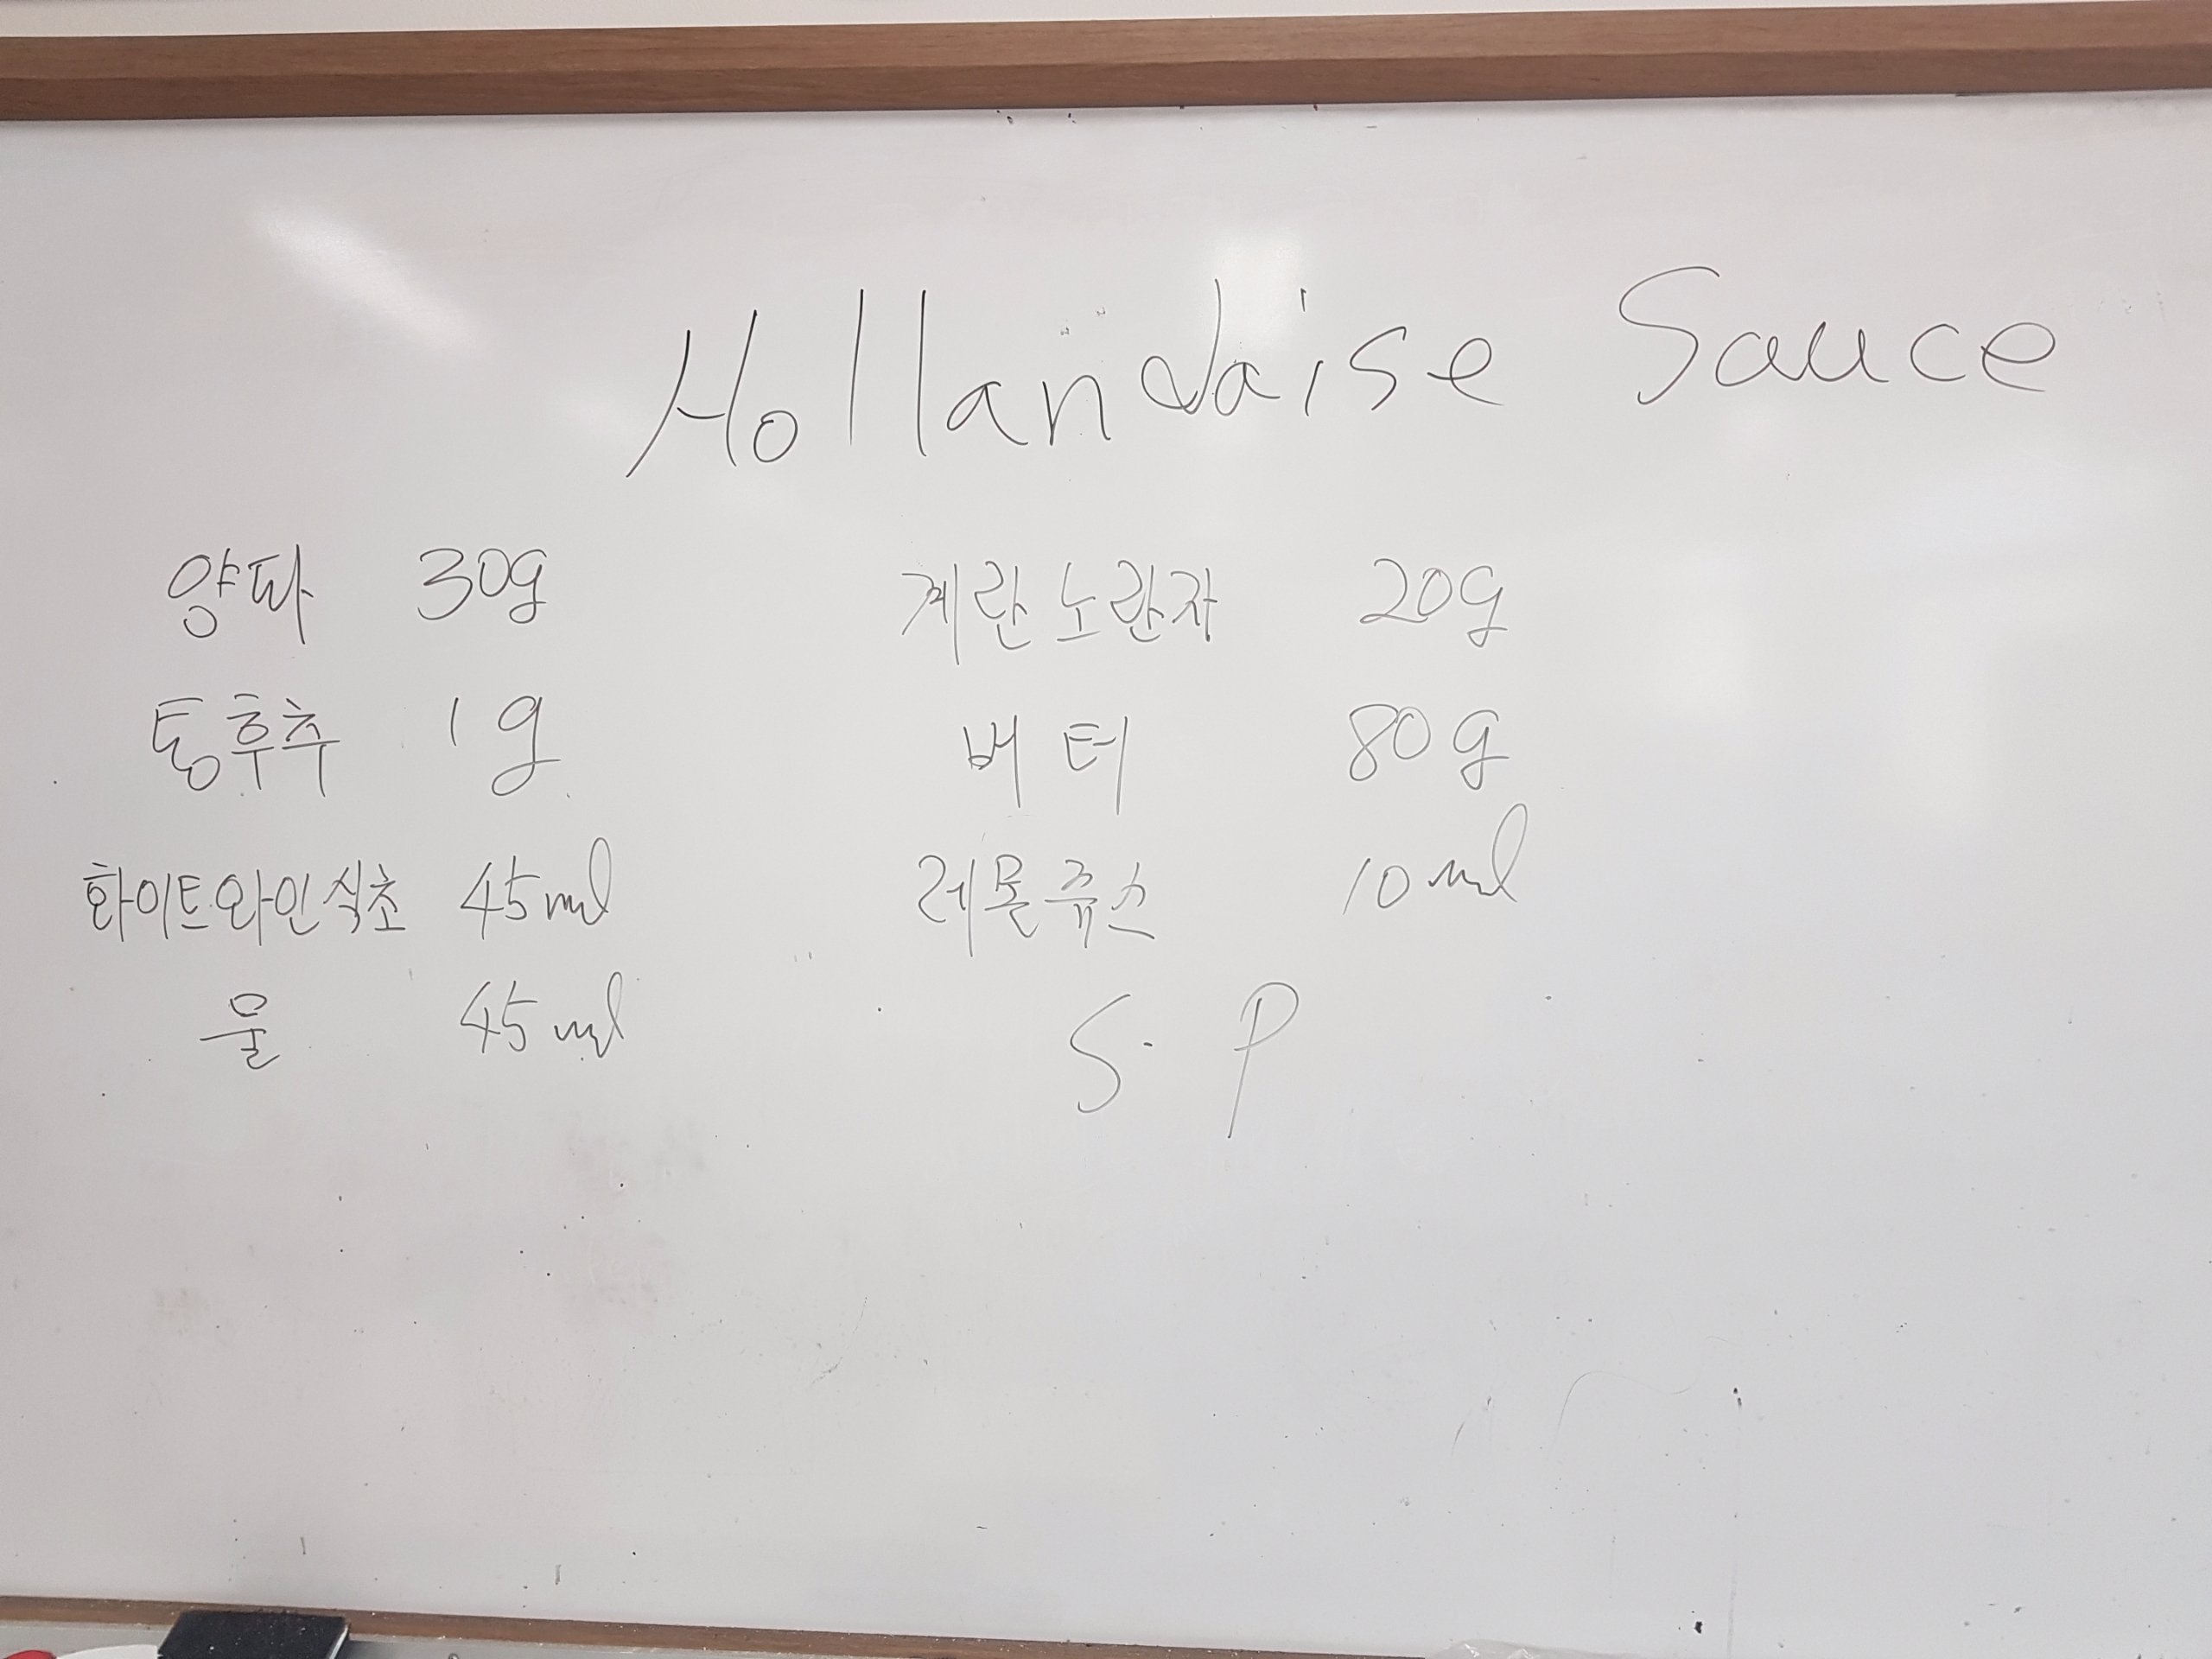 Hollandaise Sauce
양파 30g
통후추 1g
화이트와인식초 45ml
물 45ml
계란노란자 20g
버터 80g
레몬쥬스 10ml
S. P